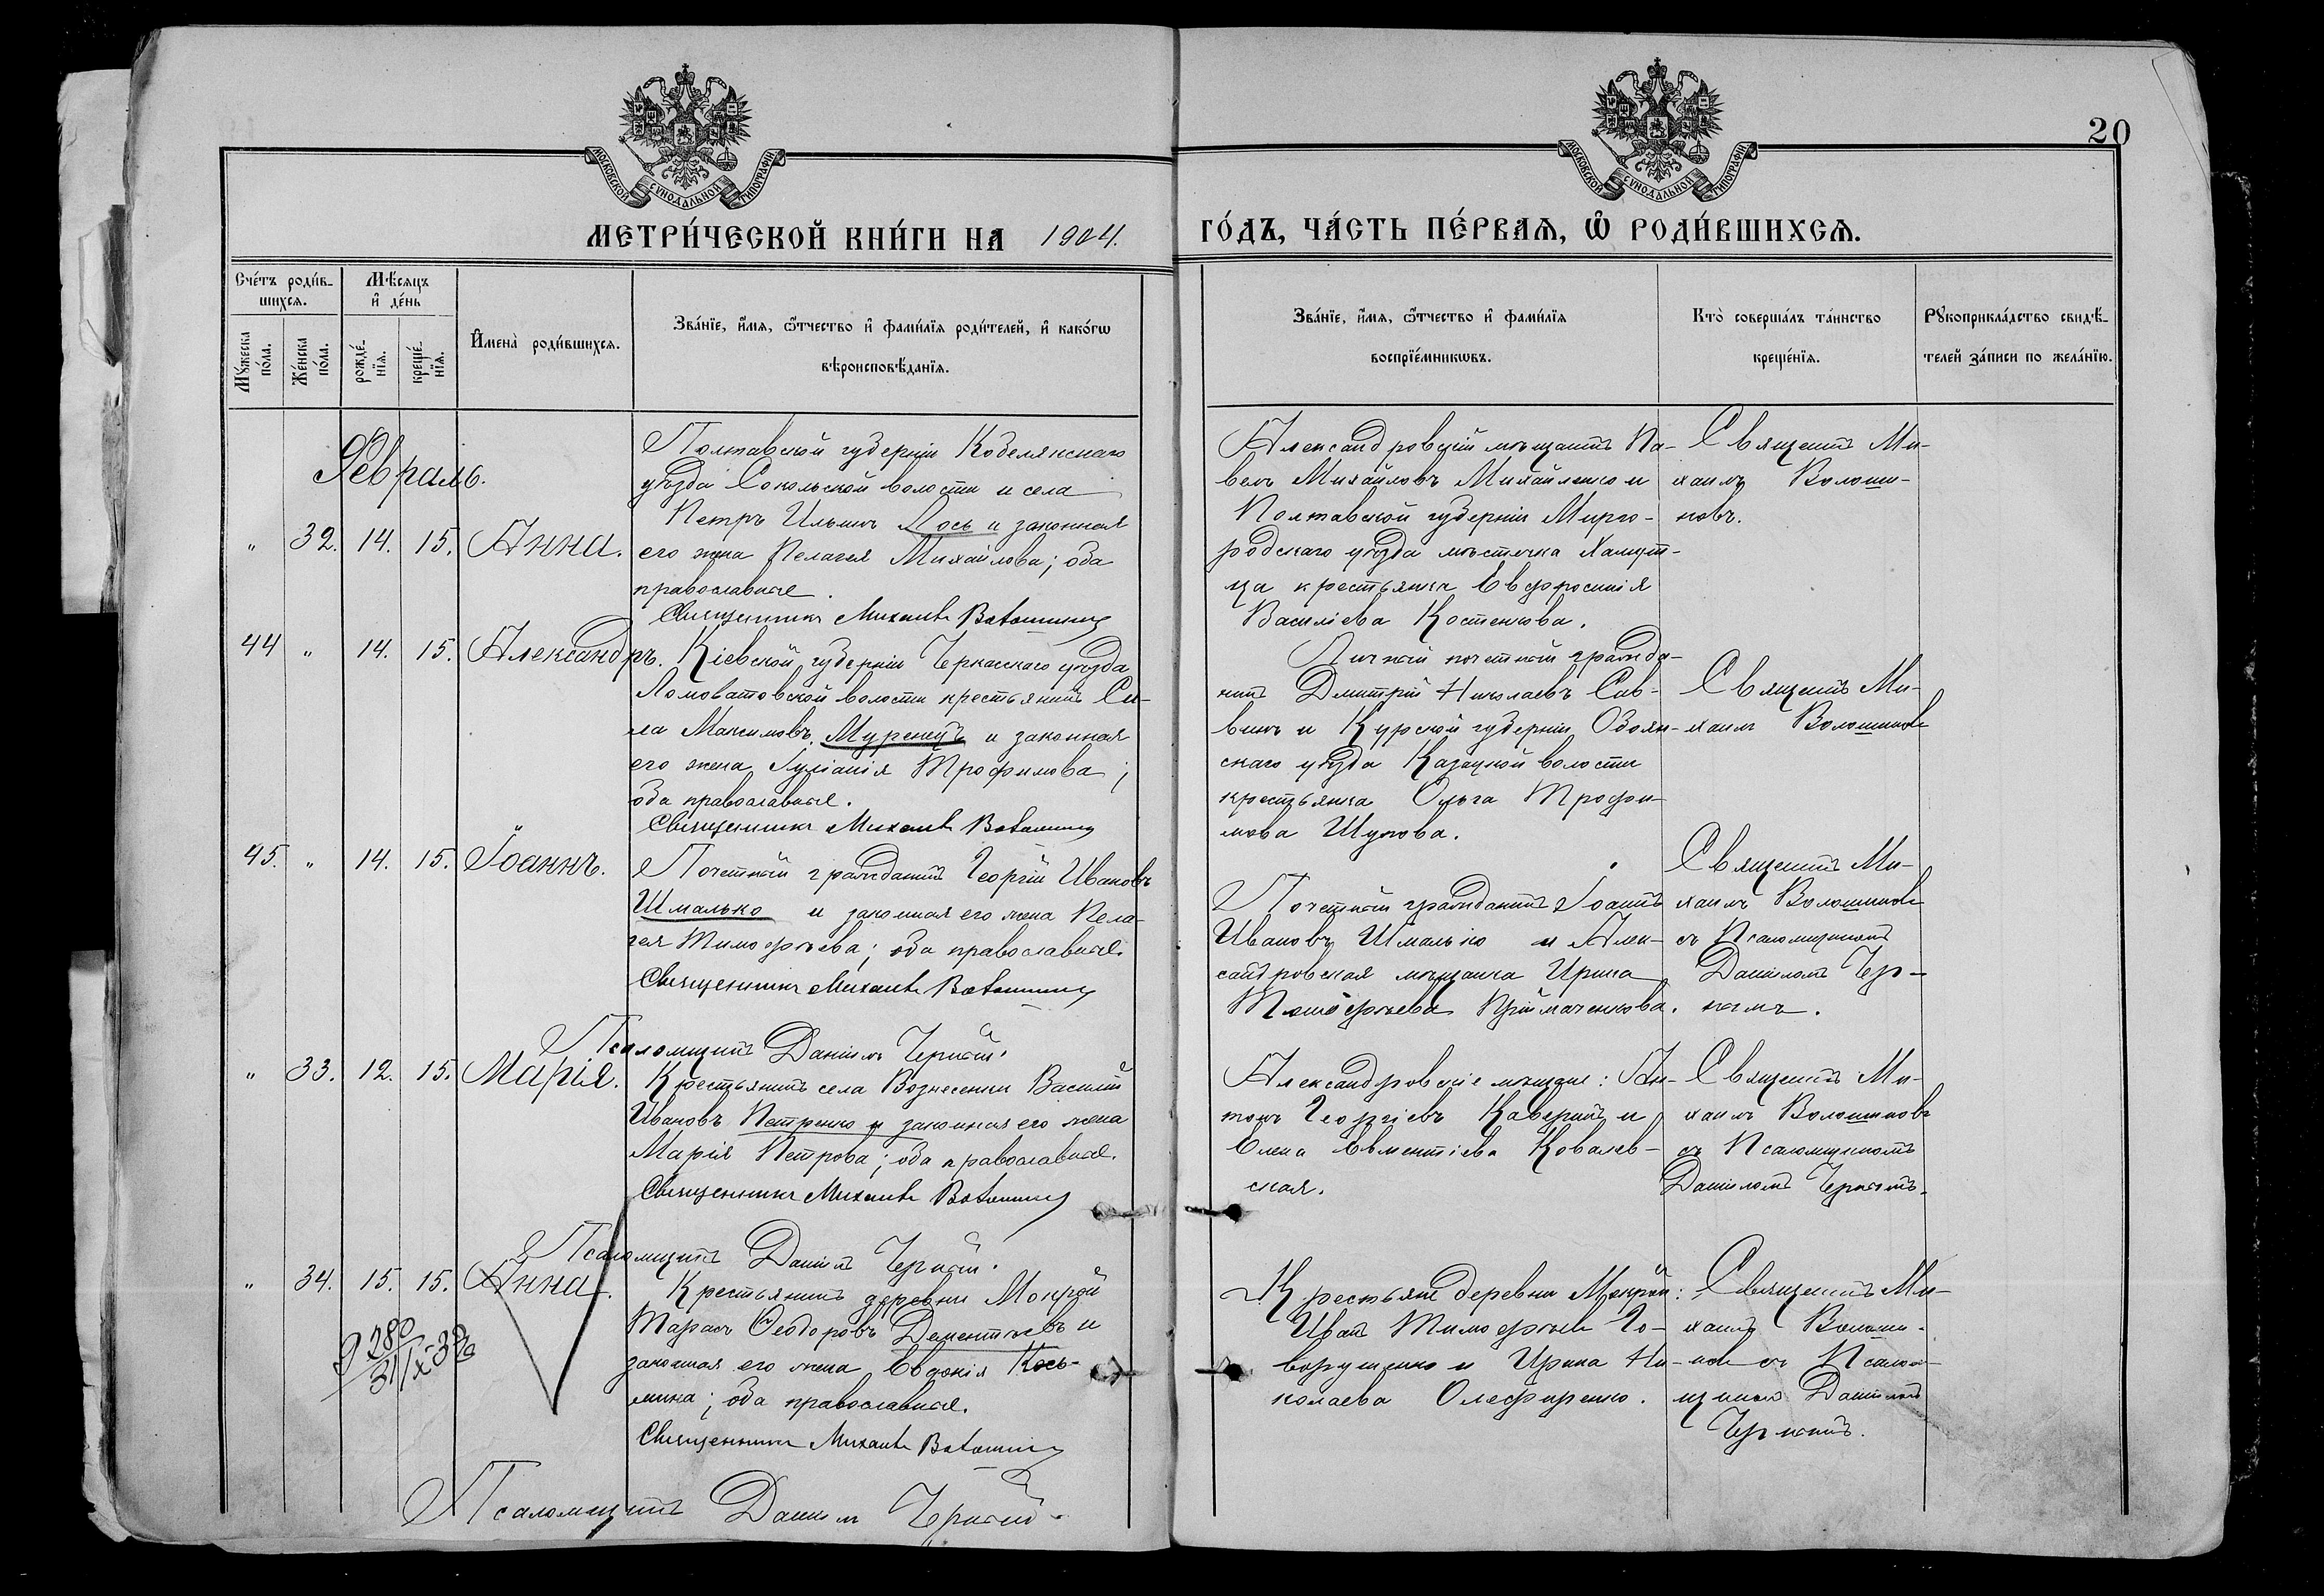 МОСКОВСКОЙ СУНОДАЛЬНОЙ ТИПОГРАФІИ
МОСКОВСКОЙ СУНОДАЛЬНОЙ ТИПОГРАФІИ
20
МЕТРИ́ЧЕСКОЙ КНИ́ГИ НА 1904.
ГО́ДЪ, ЧА́СТЬ ПЕ́РВАѦ, Ѽ РОДИ́ВШИХСѦ.
Сче́тъ роди́в-
шихсѧ.
Мꙋ́жеска
по́ла.
Же́нска
по́ла.
Мѣ́сѧцъ
и҆ де́нь
рожде́-
нїѧ.
креще́-
нїѧ.
И҆мена̀ роди́вшихсѧ.
Зва́нїе, и҆́мѧ, ѻ҆́тчество и҆ фами́лїѧ роди́телей, и҆ како́гѡ
вѣроисповѣ́данїѧ.
Зва́нїе, и҆́мѧ, ѻ҆́тчество и҆ фами́лїѧ
воспрїе́мникѡвъ.
Кто̀ соверша́лъ та́инство
креще́нїѧ.
Рꙋкоприкла́дство свидѣ́-
телей за́писи по жела́нїю.
Февраль.
" 32. 14. 15. Анна.
Полтавской губерніи Кобелякскаго
уѣзда Сокольской волости и села
Петръ Ильинъ Лось и законная
его жена Пелагея Михайлова; оба
православные.
Священникъ Михаилъ Волошиновъ
Александровскій мѣщанинъ Па-
велъ Михайловъ Михайленко и
Полтавской губерніи Мирго-
родскаго уѣзда мѣстечка Хамут-
ца крестьянка Евфросинія
Василіева Костенкова.
Священникъ Ми-
хаилъ Волоши-
новъ.
44 " 14. 15. Александръ.
Кіевской губерніи Черкасскаго уѣзда
Ломоватовской волости крестьянинъ Си-
ла Максимовъ Муренецъ и законная
его жена Іуліанія Трофимова;
оба православные.
Священникъ Михаилъ Волошиновъ
Личный почетный гражда-
нинъ Дмитрій Николаевъ Сав-
винъ и Курской губерніи Обоян-
скаго уѣзда Казацкой волости
крестьянка Ольга Трофи-
мова Шупова.
Священникъ Ми-
хаилъ Волошиновъ
45. " 14. 15. Іоаннъ.
Почетный гражданинъ Георгій Ивановъ
Шмалько и законная его жена Пела-
гея Тимофѣева; оба православные.
Священникъ Михаилъ Волошиновъ
Псаломщикъ Даніилъ Черный.
Почетный гражданинъ Іоаннъ
Ивановъ Шмалько и Алек-
сандровская мѣщанка Ирина
Тимофѣева Пріймаченкова.
Священникъ Ми-
хаилъ Волошиновъ
съ Псаломщикомъ
Даніиломъ Чер-
нымъ.
" 33. 12. 15. Марія.
Крестьянинъ села Вознесенки Василій
Ивановъ Петренко и законная его жена
Марія Петрова; оба православные.
Священникъ Михаилъ Волошиновъ
Псаломщикъ Даніилъ Черный.
Александровскіе мѣщане: Ан-
тонъ Георгіевъ Каверинъ и
Елена Евментіева Ковалев-
ская.
Священникъ Ми-
хаилъ Волошиновъ
съ Псаломщикомъ
Даніиломъ Чернымъ.
" 34. 15. 15. Анна.
Крестьянинъ деревни Мокрой
Тарасъ Ѳеодоровъ Дементьевъ и
законная его жена Евдокія Кось-
мина; оба православные.
Священникъ Михаилъ Волошиновъ
Псаломщикъ Даніилъ Черный.
Крестьяне деревни Мокрой:
Иванъ Тимофѣевъ Го-
ворущенко и Ирина Ни-
колаева Олефиренко.
Священникъ Ми-
хаилъ Волоши-
новъ съ Псалом-
щикомъ Даніиломъ
Чернымъ.
280